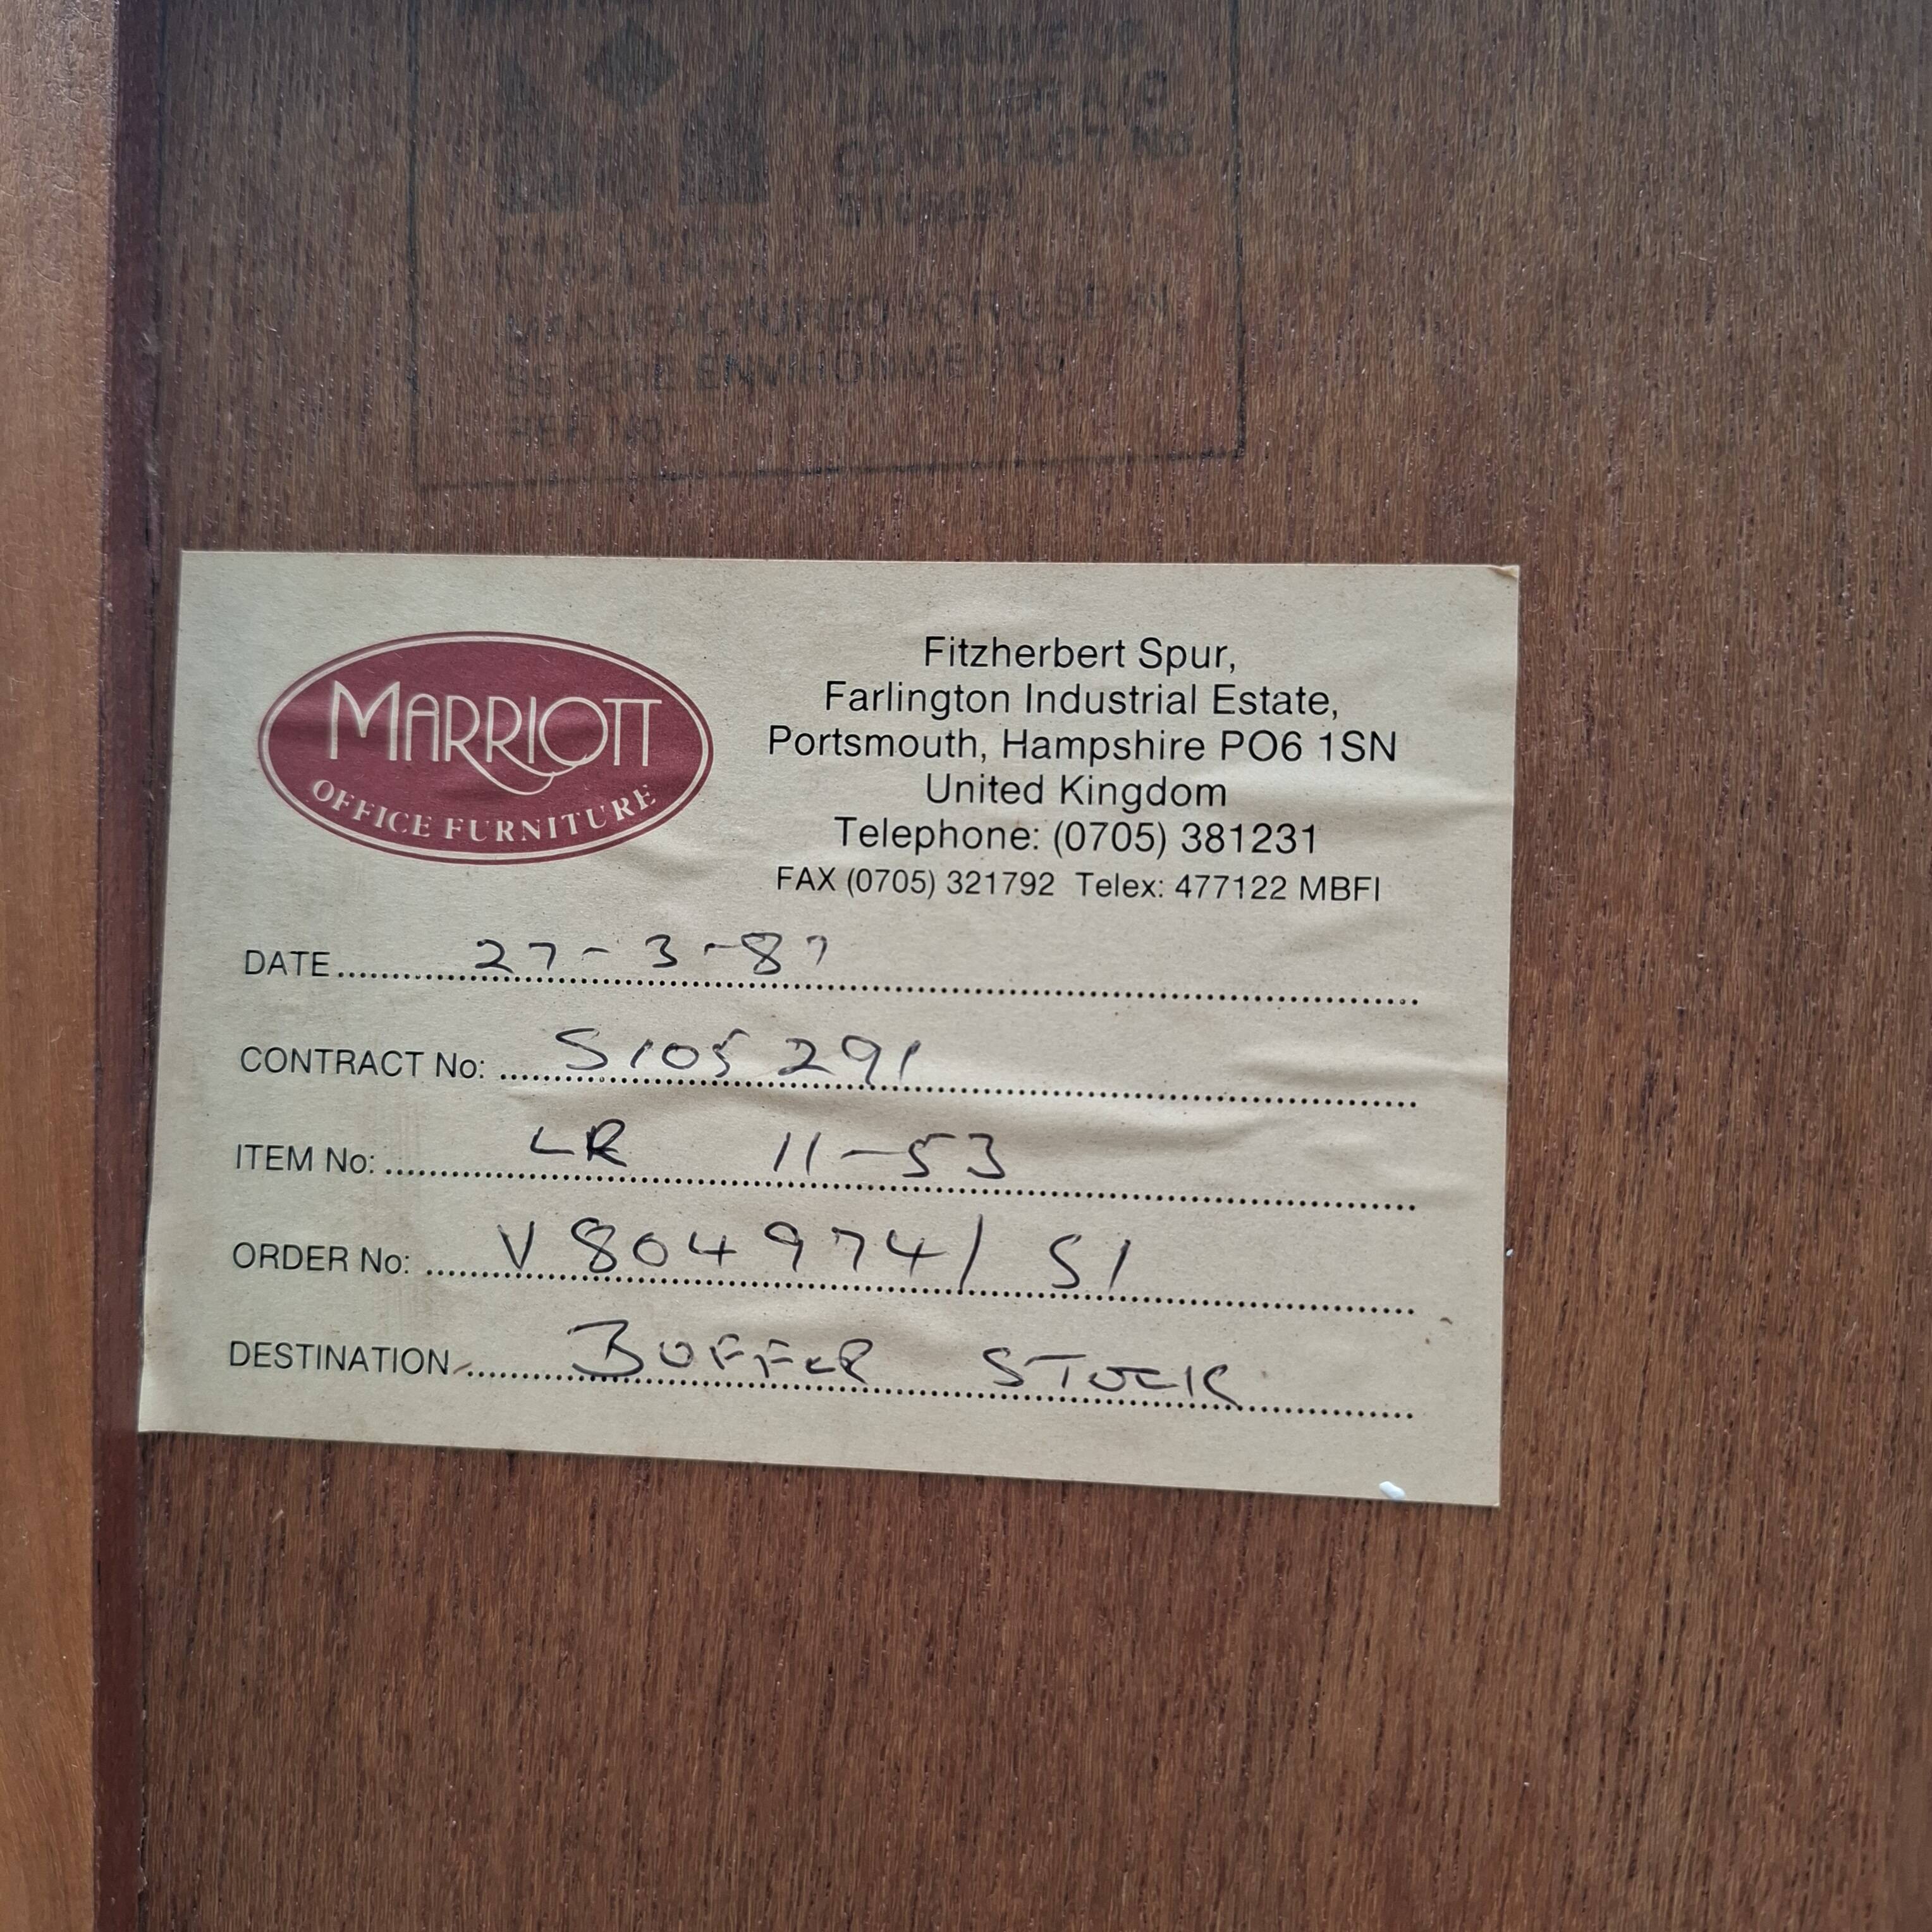 MANUFACTURED FOR USE IN
SEVERE ENVIRONMENTS
REF NO:
MARRIOTT
OFFICE FURNITURE
Fitzherbert Spur,
Farlington Industrial Estate,
Portsmouth, Hampshire PO6 1SN
United Kingdom
Telephone: (0705) 381231
FAX (0705) 321792 Telex: 477122 MBFI
DATE 27-3-87
CONTRACT No: S105291
ITEM No: LR 11-53
ORDER No: V804974/S1
DESTINATION BUFFER STOCK